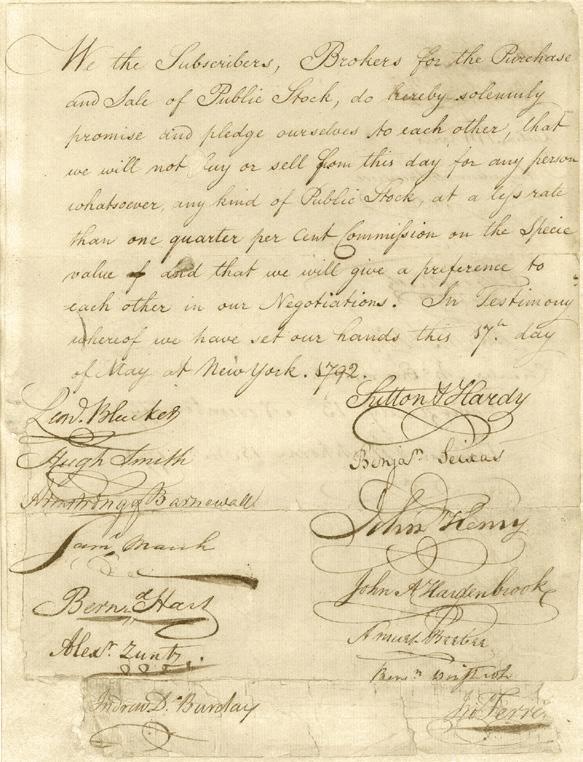 We the Subscribers, Brokers for the Purchase
and Sale of Public Stock, do hereby solemnly
promise and pledge ourselves to each other, that
we will not buy or sell from this day for any person
whatsoever, any kind of Public Stock, at a less rate
than one quarter per Cent Commission on the Specie
value of and that we will give a preference to
each other in our Negotiations. In Testimony
whereof we have set our hands this 17th day
of May at New York. 1792.
Leond. Bleecker
Hugh Smith
Armstrong & Barnewall
Saml. March
Bernd. Hart
Alexr. Zuntz
Andrew D. Barclay
Sutton & Hardy
Benjan. Seixas
John Henry
John A Hardenbrook
Amust Beebee
Benjn Winthrop
Jno Ferrers